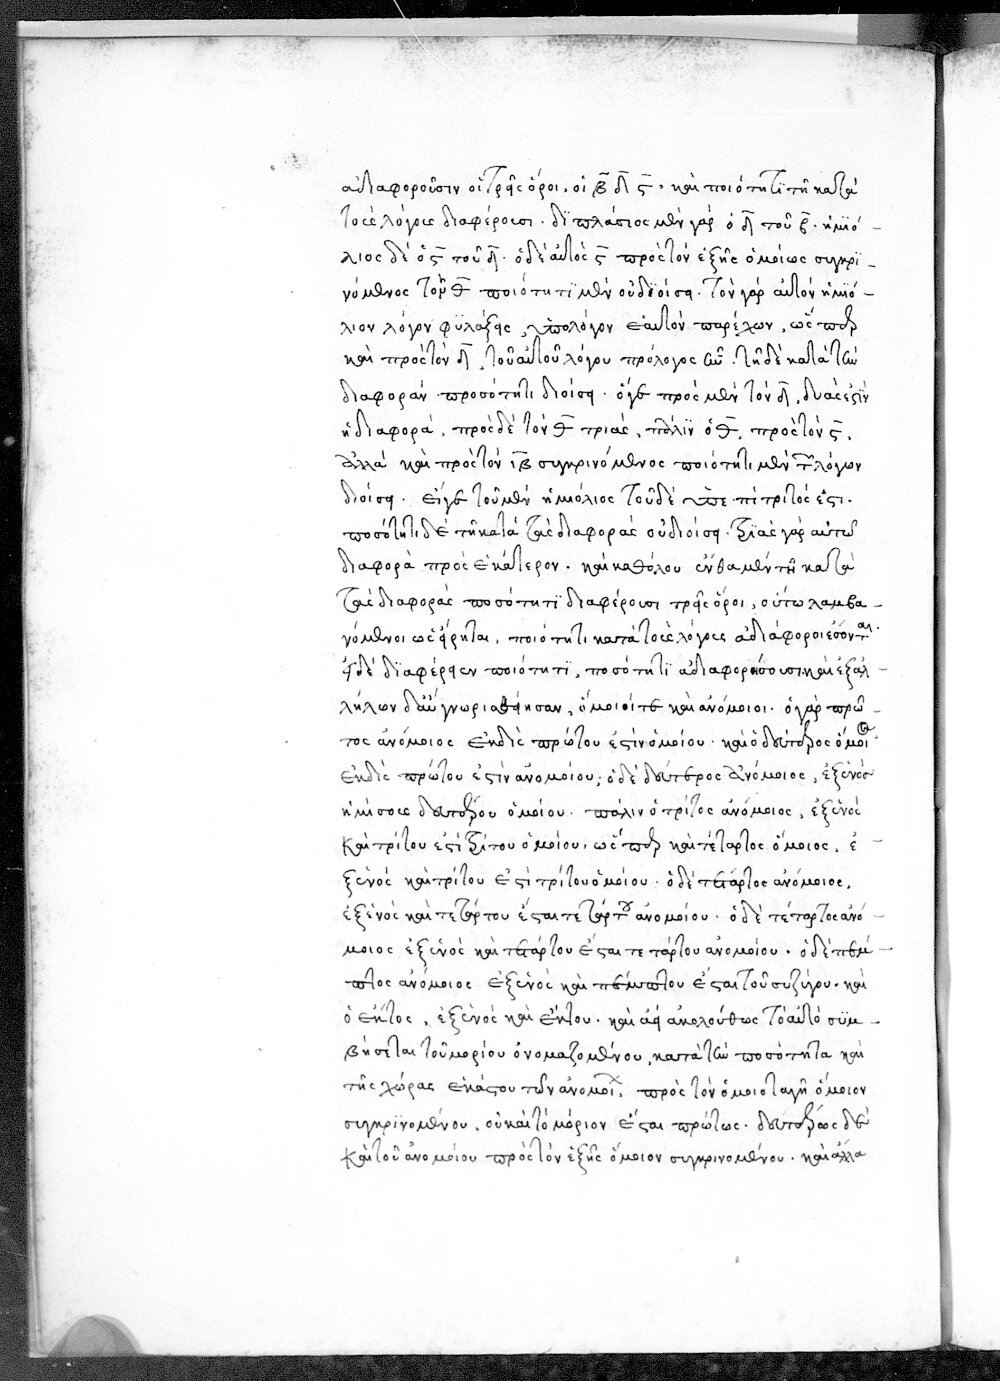 ἀδιαφοροῦσιν οἱ τρεῖς ὅροι, οἱ β̅ δ̅ ϛ̅, καὶ ποιότητι τῇ κατὰ
τοὺς λόγους διαφέρουσι· διπλάσιος μὲν γὰρ ὁ δ̅ τοῦ β̅· ἡμιό-
λιος δὲ ὁ ϛ̅ τοῦ δ̅· ὁ δὲ αὐτὸς ϛ̅ πρὸς τὸν ἑξῆς ὁμοίως συγκρι-
νόμενος τὸν θ̅ ποιότητι μὲν οὐ διοίσει· τὸν γὰρ αὐτὸν ἡμιό-
λιον λόγον φυλάξει, ὑπόλογον ἑαυτὸν παρέχων, ὥσπερ
καὶ πρὸς τὸν δ̅, τοῦ αὐτοῦ λόγου πρόλογος ὤν· τῇ δὲ κατὰ τὴν
διαφορὰν ποσότητι διοίσει· εἴγε πρὸς μὲν τὸν δ̅, δυάς ἐστιν
ἡ διαφορά, πρὸς δὲ τὸν θ̅ τριάς, πάλιν ὁ θ̅, πρὸς τὸν ϛ̅,
ἀλλὰ καὶ πρὸς τὸν ιβ̅ συγκρινόμενος ποιότητι μὲν τῶν λόγων
διοίσει· εἴγε τοῦ μὲν ἡμιόλιος τοῦ δὲ ὑπεπίτριτός ἐστι·
ποσότητι δὲ τῇ κατὰ τὰς διαφορὰς οὐ διοίσει· τριὰς γὰρ αὐτῷ
διαφορὰ πρὸς ἑκάτερον· καὶ καθόλου ἔνθα μὲν τῇ κατὰ
τὰς διαφορὰς ποσότητι διαφέρουσι τρεῖς ὅροι, οὕτω λαμβα-
νόμενοι ὡς εἴρηται, ποιότητι κατὰ τοὺς λόγους ἀδιάφοροι ἔσονται·
εἰ δὲ διαφέρειεν ποιότητι, ποσότητι ἀδιαφορήσουσι καὶ ἐξ ἀλ-
λήλων δ' ἂν γνωρισθείησαν, ὅμοιοί τε καὶ ἀνόμοιοι· ὁ γὰρ πρῶ-
τος ἀνόμοιος ἐκ δὶς πρώτου ἐστὶν ὁμοίου· καὶ ὁ δεύτερος ὅμοιος
ἐκ δὶς πρώτου ἐστὶν ἀνομοίου· ὁ δὲ δεύτερος ἀνόμοιος, ἐξ ἑνὸς
ἡμίσους δευτέρου ὁμοίου· πάλιν ὁ τρίτος ἀνόμοιος, ἐξ ἑνὸς
καὶ τρίτου ἐστὶ τρίτου ὁμοίου, ὥσπερ καὶ τέταρτος ὅμοιος, ἐ-
ξ ἑνὸς καὶ τρίτου ἐστὶ τρίτου ὁμοίου· ὁ δὲ τέταρτος ἀνόμοιος,
ἐξ ἑνὸς καὶ τετάρτου ἔσται τετάρτου ἀνομοίου· ὁ δὲ τέταρτος ἀνό-
μοιος ἐξ ἑνὸς καὶ τετάρτου ἔσται τετάρτου ἀνομοίου· ὁ δὲ πέμ-
πτος ἀνόμοιος ἐξ ἑνὸς καὶ πέμπτου ἔσται τοῦ συζύγου· καὶ
ὁ ἕκτος, ἐξ ἑνὸς καὶ ἕκτου· καὶ ἀεὶ ἀκολούθως τὸ αὐτὸ συμ-
βήσεται τοῦ μορίου ὀνομαζομένου, κατὰ τὴν ποσότητα καὶ
τῆς χώρας ἑκάστου τῶν ἀνομοίων, πρὸς τὸν ὁμοιοταγῆ ὅμοιον
συγκρινομένου, οὐ καὶ τὸ μόριον ἔσται πρώτως· δευτέρως δὲ
καὶ τοῦ ἀνομοίου πρὸς τὸν ἑξῆς ὅμοιον συγκρινομένου· καὶ ἀλλα